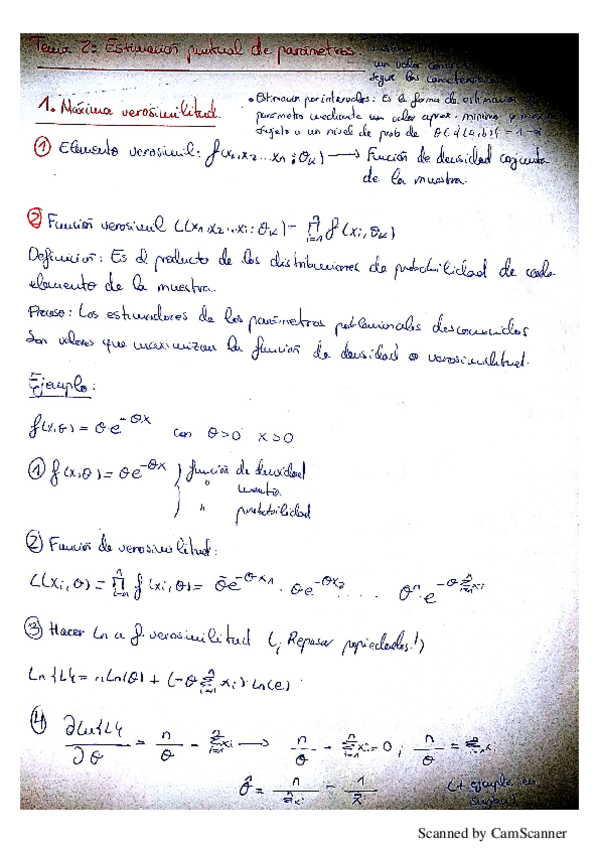 Tema 2: Estimación puntual de parámetros.
un valor
segun las
1. Máxima verosimilitud.
• Estimación por intervalos: Es la forma de estimar
parámetro mediante un valor aprox. mínimo y
sujeto a un nivel de prob de θ ∈ {a,b} = 1-α
① Elemento verosimil: f(x₁,x₂...xₙ;θₖ) → Función de densidad conjunta
de la muestra.
② Función verosimil L(x₁,x₂...xᵢ:θₖ) = ∏ᵢ₌₁ⁿ f(xᵢ,θₖ)
Definición: Es el producto de las distribuciones de probabilidad de cada
elemento de la muestra.
Proceso: Los estimadores de los parámetros poblacionales desconocidos
son valores que maximizan la función de densidad o verosimilitud.
Ejemplo:
f(x,θ) = θe^-θx con θ>0 x>0
① f(x,θ) = θe^-θx } función de densidad
" cuantía
" probabilidad
② Función de verosimilitud:
L(xᵢ,θ) = ∏ᵢ₌₁ⁿ f(xᵢ,θ) = θe^-θx₁ · θe^-θx₂ ..... θⁿ·e^-θ∑ᵢ₌₁ⁿxᵢ
③ Hacer Ln a f. verosimilitud (¡Repasar propiedades!)
Ln{L} = nLn(θ) + (-θ∑ᵢ₌₁ⁿxᵢ)·Ln(e)
④ ∂Ln{L}/∂θ = n/θ - ∑ᵢ₌₁ⁿxᵢ → n/θ - ∑ᵢ₌₁ⁿxᵢ = 0 ; n/θ = ∑ᵢ₌₁ⁿxᵢ
θ̂ = n/∑xᵢ = 1/x̄
(+ ejemplo en
Scanned by CamScanner